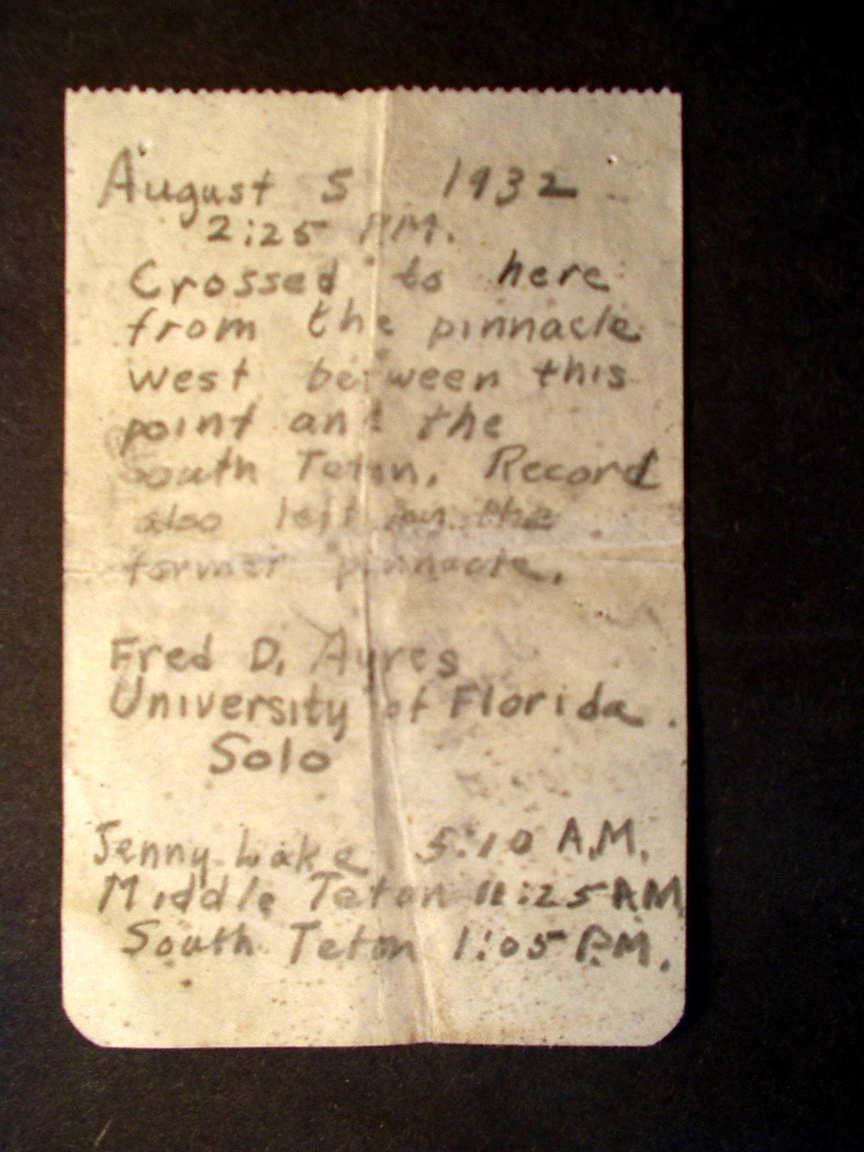 August 5 1932
2:25 PM.
Crossed to here
from the pinnacle
west between this
point and the
South Teton. Record
also left on the
former pinnacle.
Fred D. Ayres
University of Florida.
Solo
Jenny Lake 5:10 A.M.
Middle Teton 11:25 AM
South Teton 1:05 P.M.